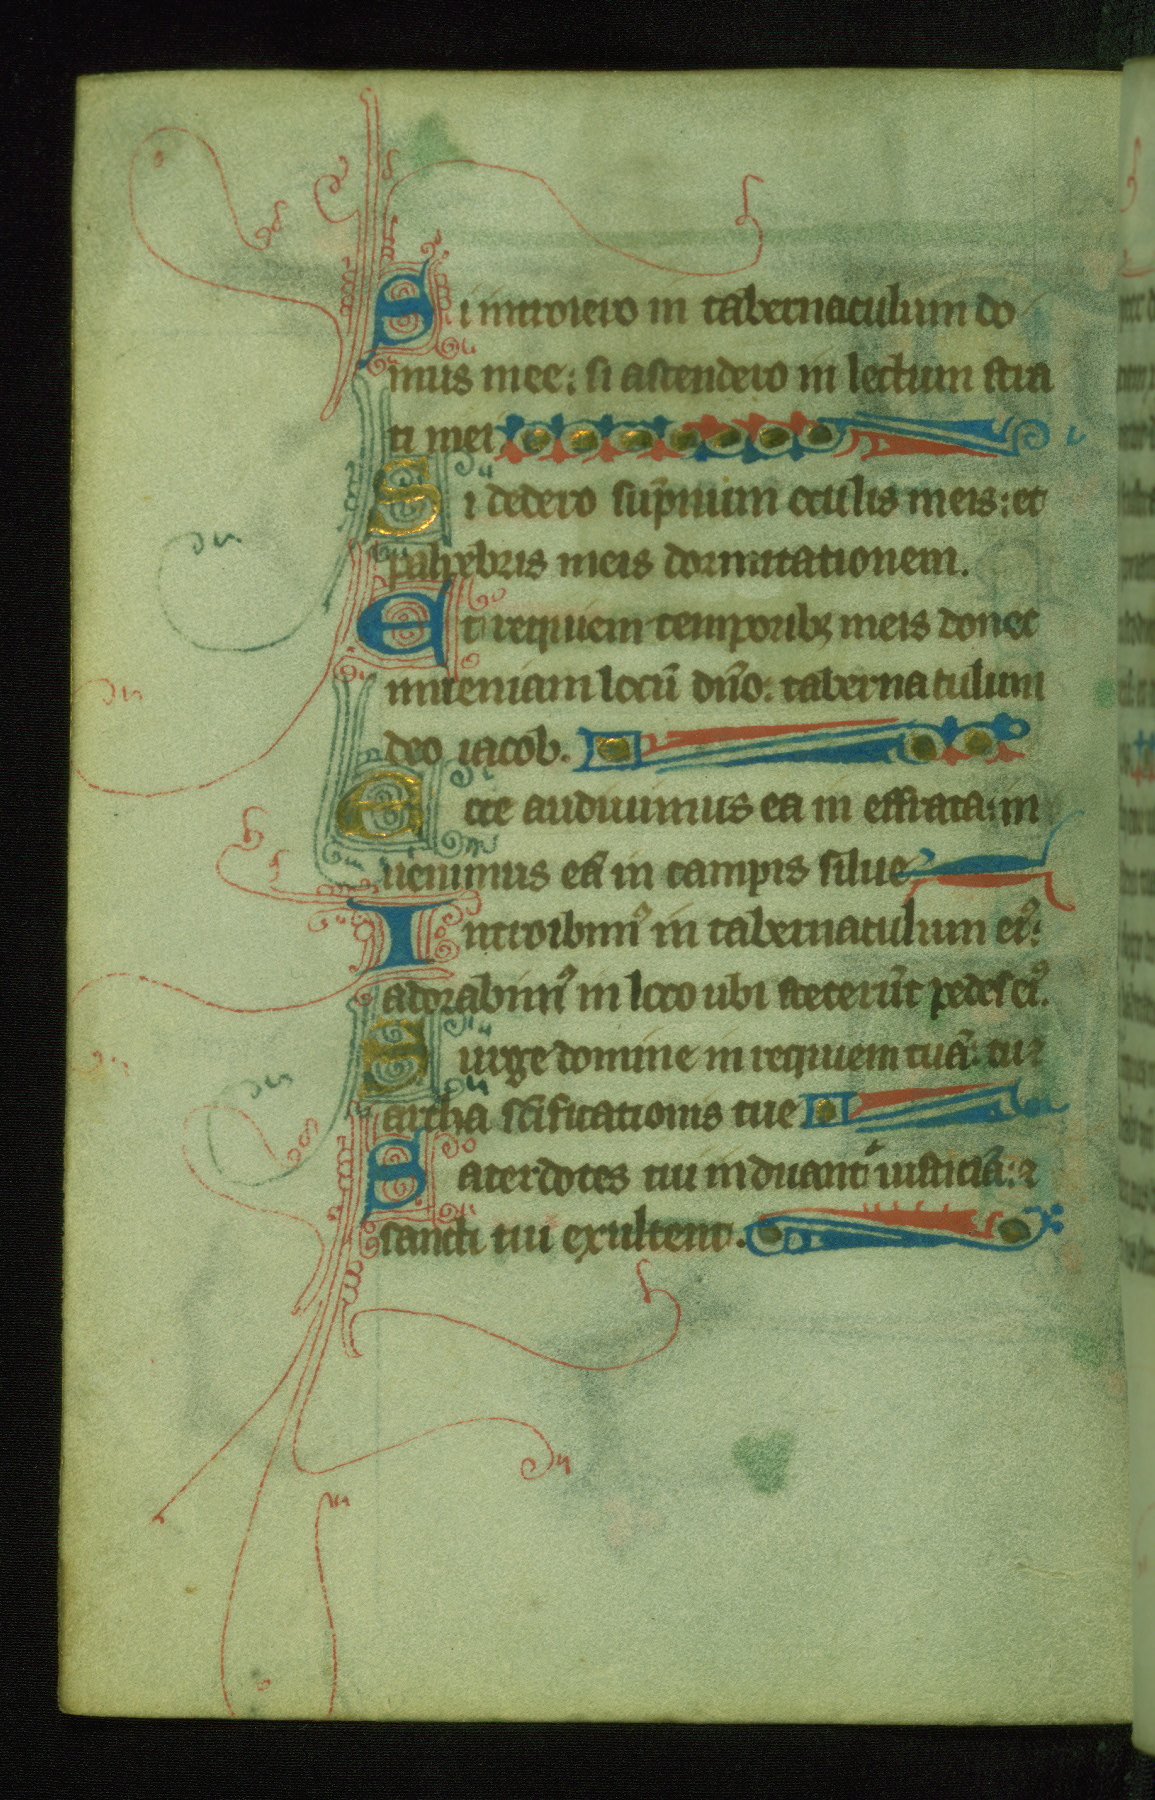 Si introiero in tabernaculum do
mus mee: si ascendero in lectum stra
ti mei
Si dedero sup̄num occulis meis: et
palpebris meis dormitationem.
Et requiem temporibꝫ meis donec
inueniam locū dn̄o: tabernaculum
deo iacob.
Ecce audiuimus ea in effrata: in
uenimus eā in campis silue
Introibimꝰ in tabernaculum eiꝰ:
adorabimꝰ in loco ubi steterūt pedes eiꝰ.
Surge domine in requiem tuā: tu ⁊
archa sc̄ificationis tue
Sacerdotes tui induant iusticiā: ⁊
sancti tui exultent.